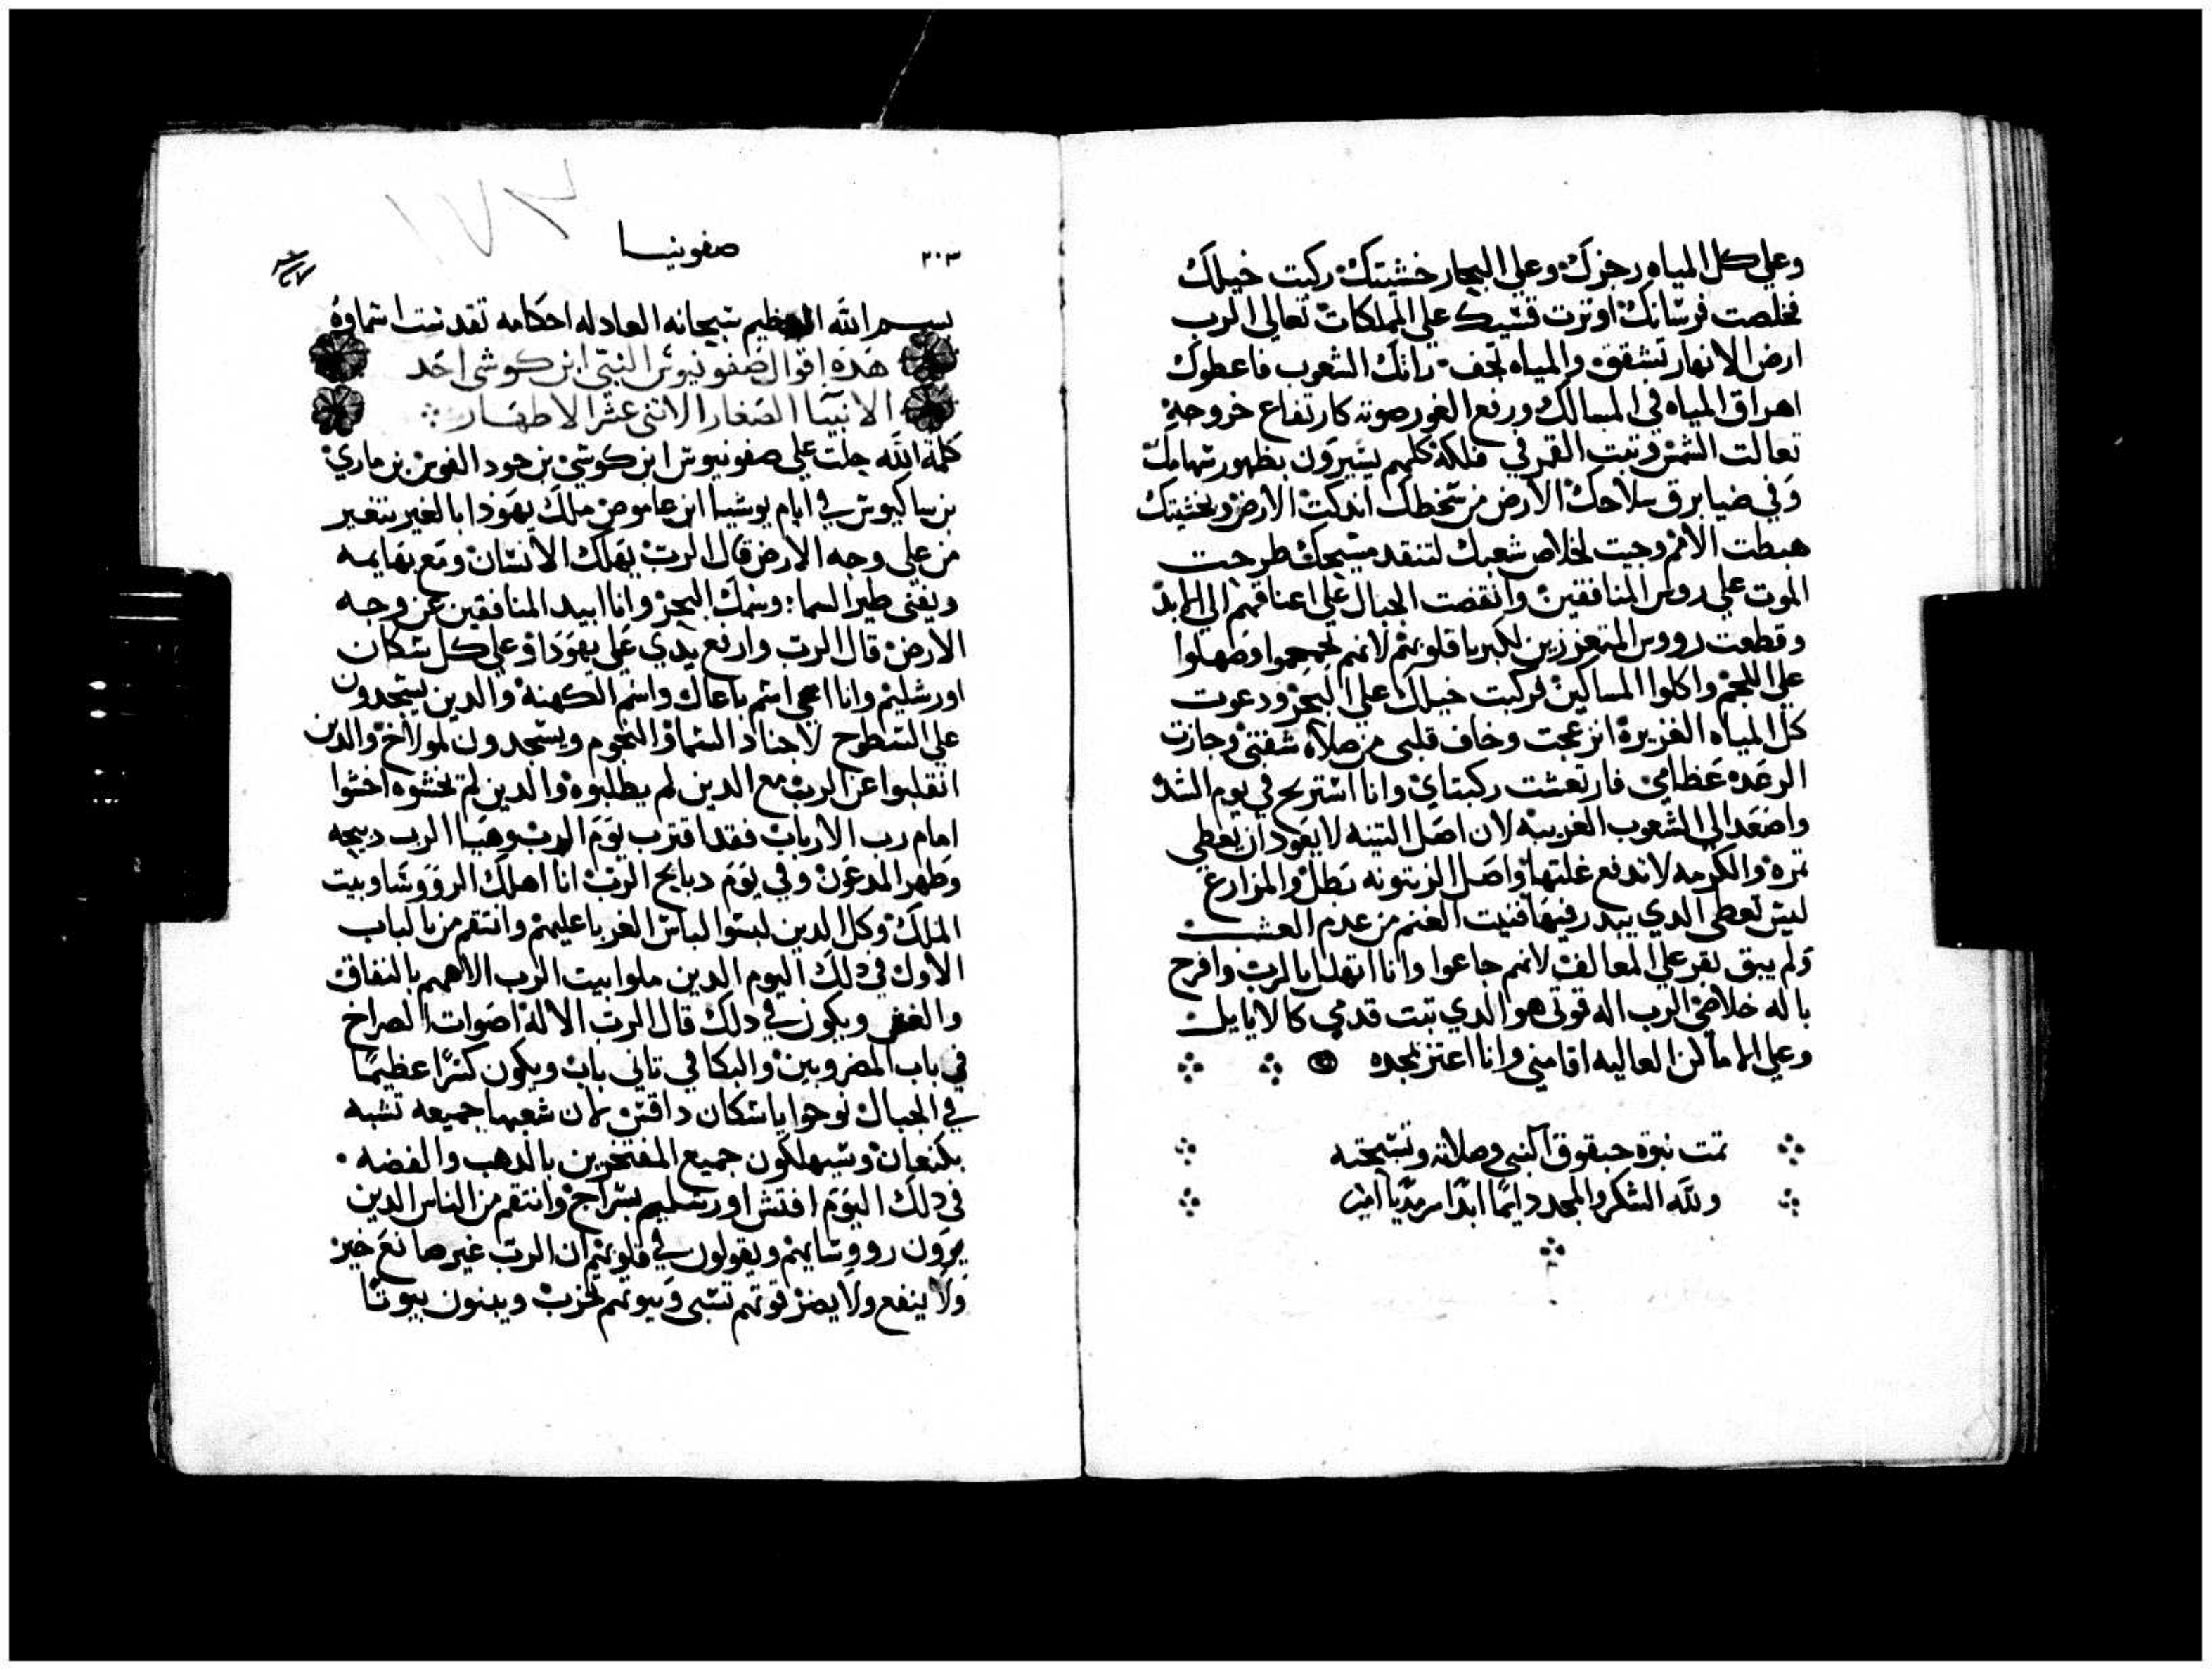 وعلي كل المياه رجزك وعلي البحار خشيتك ركبت خيلك
فخلصت فرسانك اوترت قسيك علي المملكات تعالي الرب
ارض الانهار تشقق والمياه تجف راتك الشعوب فاعطوك
اهراق المياه في المسالك ورفع الغور صوته كارتفاع خروجه
تعالت الشمس وتبت القمر في فلكه كلهم يسيرون بظهور سهامك
وفي ضيا برق سلاحك الارض من سخطك اندكت الارض وبخشيتك
هبطت الامم وجيت لخلاص شعبك لتنقد مسيحك طرحت
الموت علي روس المنافقين وانقضت الجبال علي اعناقهم الي الابد
وقطعت رووس المتعززين لكبريا قلوبهم لانهم تحمحموا وصهلوا
علي اللجم واكلوا المساكين فركبت خيلك علي البحر ودعوت
كل المياه الغزيرة انزعجت وخاف قلبي من صلاه شفتي وجازت
الرعده عظامي فارتعشت ركبتاي وانا استريح في يوم الشده
واصعد الي الشعوب الغريبه لان اصل التينه لا يعود ان يعطي
تمره والكرمه لا تدفع غلتها واصل الزيتونه بطل والمزارع
ليس تعطي الدي يبدر فيها فنيت الغنم من عدم العشب
ولم يبق بقر علي المعالف لانهم جاعوا وانا اتهلل بالرب وافرح
باله خلاصي الرب اله قوتي هو الدي تبت قدمي كالايايل
وعلي الاماكن العاليه اقامني وانا اعتز بمجده
تمت نبوة حبقوق النبي وصلاته وتسبحته
ولله الشكر والمجد دايمًا ابدًا سرمديًا امين
٢٠٣
صفونيا
١٧٣
بسم الله العظيم سبحانه العادله احكامه تقدست اسماوه
هده اقوال صفونيوس النبي ابن كوشي احد
الانبيا الصغار الاتني عشر الاطهار
كلمة الله حلت علي صفونيوس ابن كوشي بن حود الغوين بن ماري
بن ساكيوس في ايام يوشيا ابن عاموص ملك يهودا بالغير يتغير
من علي وجه الارض قال الرب يهلك الانسان ومع بهايمه
ويفني طير السما وسمك البحر وانا ابيد المنافقين عن وجه
الارض قال الرب وارفع يدي علي يهودا وعلي كل سكان
اورشليم وانا امحي اسم باعال واسم الكهنه والدين يسجدون
علي السطوح لاجناد السما والنجوم ويسجدون لمولاخ والدين
انقلبوا عن الرب مع الدين لم يطلبوه والدين لم يخشوه اخشوا
امام رب الارباب فقد اقترب يوم الرب وهيا الرب دبيحه
وطهر المدعون وفي يوم دبايح الرب انا اهلك الرووسا وبيت
الملك وكل الدين لبسوا لباس الغربا عليهم وانتقم من بالباب
الاول في دلك اليوم الدين ملوا بيت الرب الاههم بالنفاق
والغش ويكون في دلك قال الرب الاله اصوات الصراخ
في باب المضروبين والبكا في تاني باب ويكون كسرًا عظيمًا
في الجبال نوحوا يا سكان داقتن لان شعبها جميعه تشبه
بكنعان وسيهلكون جميع المفتخرين بالدهب والفضه
في دلك اليوم افتش اورشليم بسراج وانتقم من الناس الدين
يرون رووسايهم ويقولون في قلوبهم ان الرب غير صانع خير
ولا ينفع ولا يضر قوتهم تسبي وبيوتهم تخرب ويبنون بيوتًا